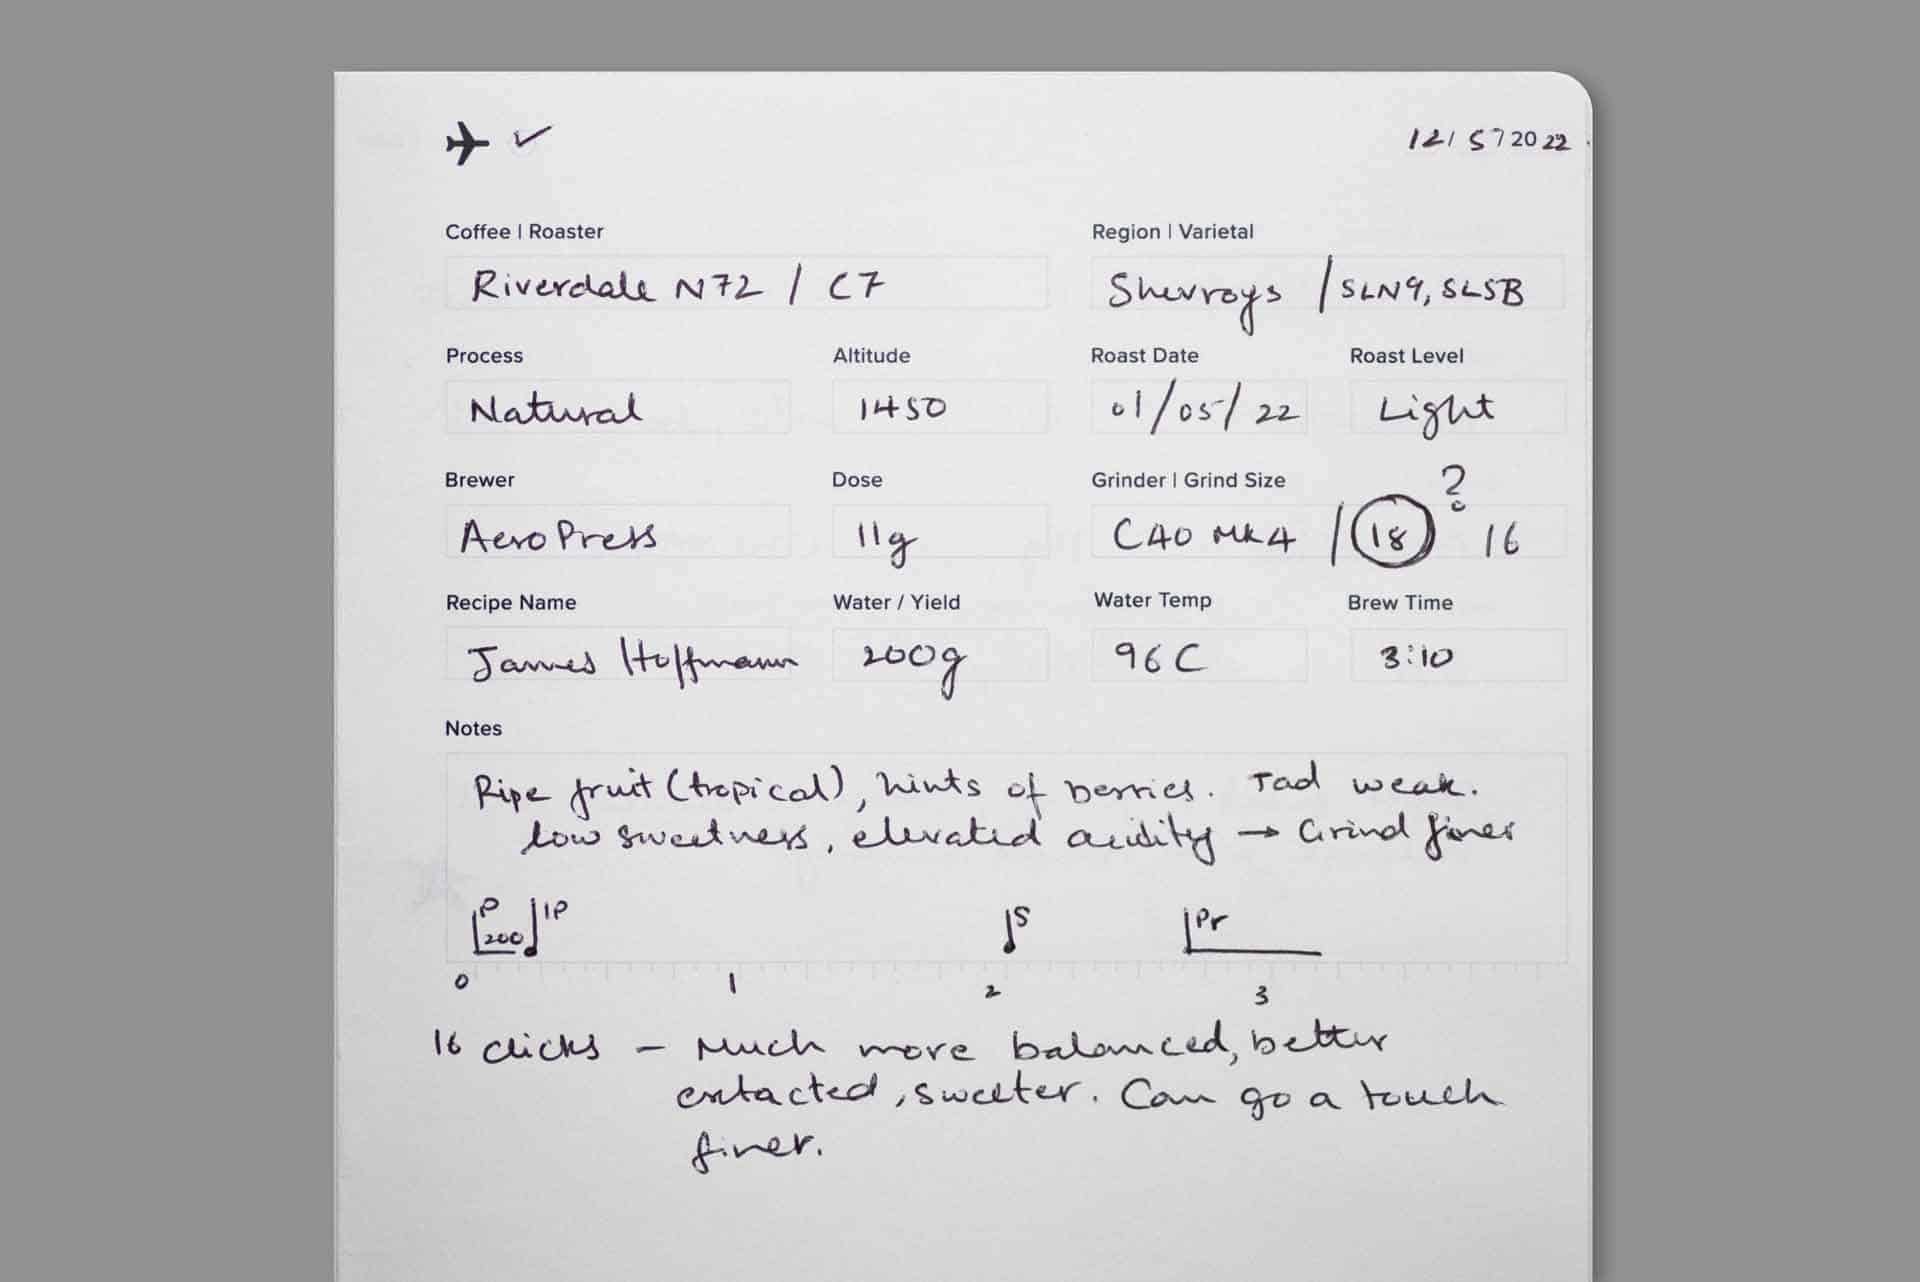 12/ 5/2022
Coffee | Roaster Region | Varietal
Riverdale N72 / C7 Shevroys / SLN9, SL5B
Process Altitude Roast Date Roast Level
Natural 1450 01/05/22 Light
Brewer Dose Grinder | Grind Size
AeroPress 11g C40 MK4 / 18 ? 16
Recipe Name Water / Yield Water Temp Brew Time
James Hoffmann 200g 96 C 3:10
Notes
Ripe fruit (tropical), hints of berries. Tad weak.
low sweetness, elevated acidity → Grind finer
P 200 IP S Pr
0 1 2 3
16 clicks – Much more balanced, better
extacted, sweeter. Can go a touch
finer.